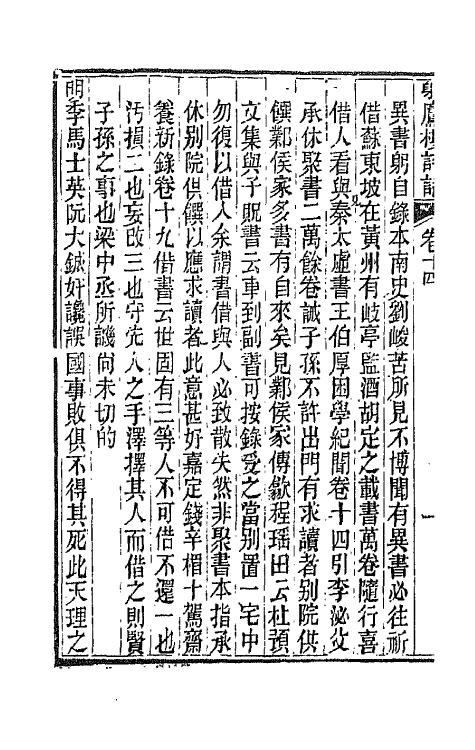 射鷹樓詩話 卷十四 一
異書躬自錄本南史劉峻苦所見不博聞有異書必往祈
借蘇東坡在黃州有岐亭監酒胡定之載書萬卷隨行喜
借人看見與秦太虛書王伯厚困學紀聞卷十四引李泌父
承休聚書二萬餘卷誡子孫不許出門有求讀者別院供
饌鄴侯家多書有自來矣見鄴侯家傳歙程瑤田云杜預
文集與子貺書云車到副書可按錄受之當別置一宅中
勿復以借人余謂書借與人必致散失然非聚書本指承
休別院供饌以應求讀者此意甚好嘉定錢辛楣十駕齋
養新錄卷十九借書云世固有三等人不可借不還一也
汚損二也妄改三也守先人之手澤擇其人而借之則賢
子孫之事也梁中丞所譏尚未切的
明季馬士英阮大鋮奸讒誤國事敗俱不得其死此天理之